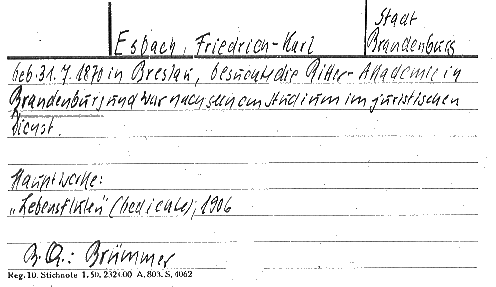 Stadt
Esbach, Friedrich-Karl Brandenburg
geb. 31. 7. 1870 in Breslau, besuchte die Ritter-Akademie in
Brandenburg und war nach seinem Studium im juristischen
Dienst.
Hauptwerke:
„Lebensfluten" (Gedichte), 1906
B. Q.: Brümmer
Reg. 10. Stichnote 1. 50. 2321.00 A. 803. S. 4062